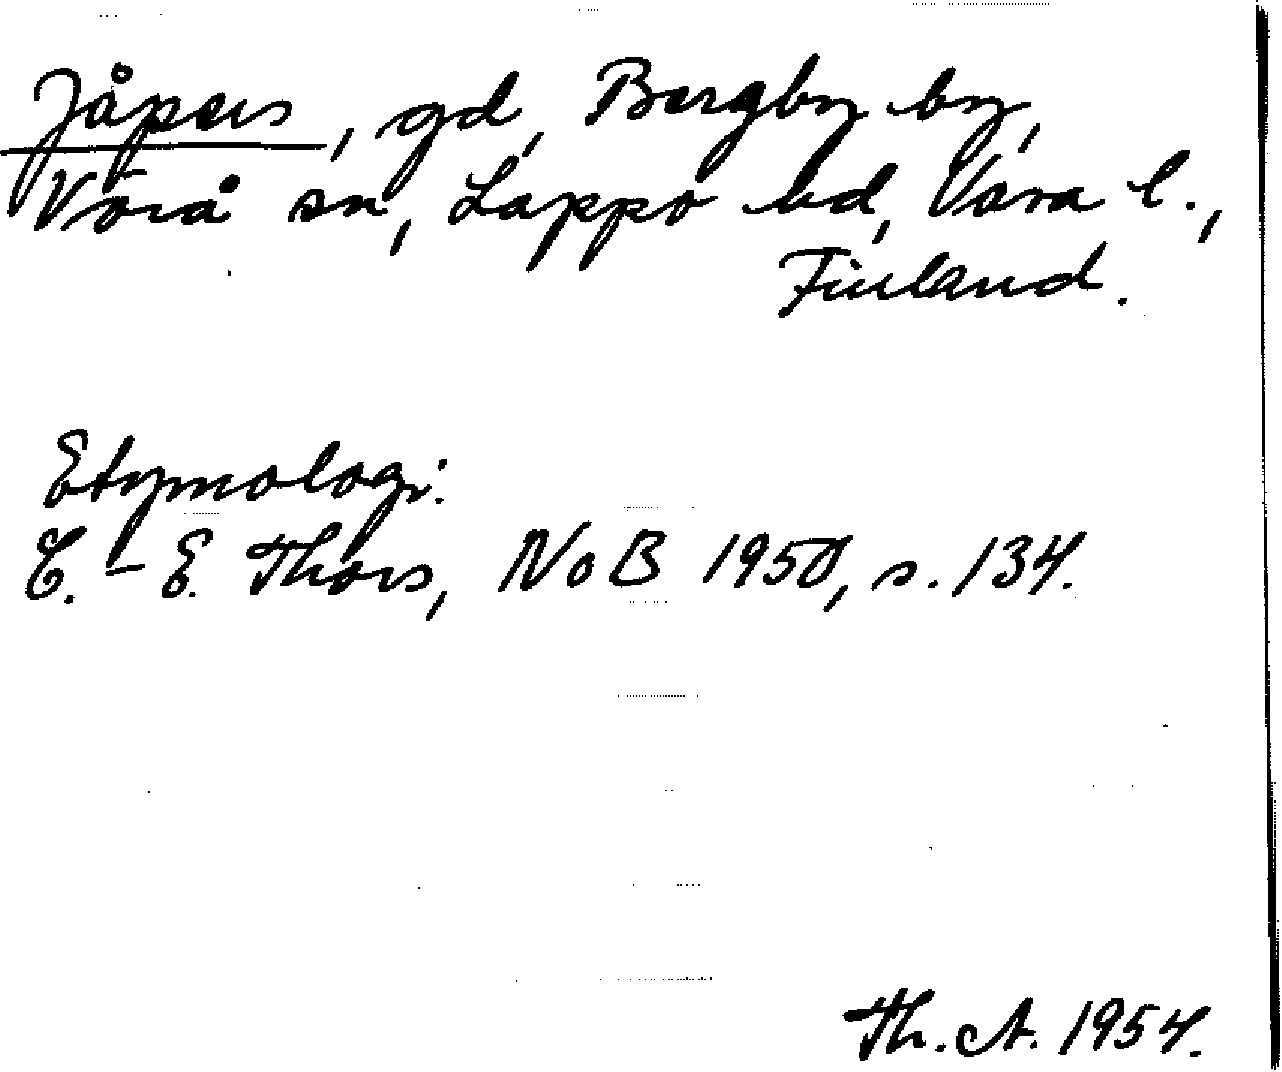 Jåpens, gd, Bergby by,
Vörå sn, Lappo hd, Vasa l.,
Finland.
Etymologi:
C.-E. Thors, NoB 1950, s. 134.
Th. A. 1954.